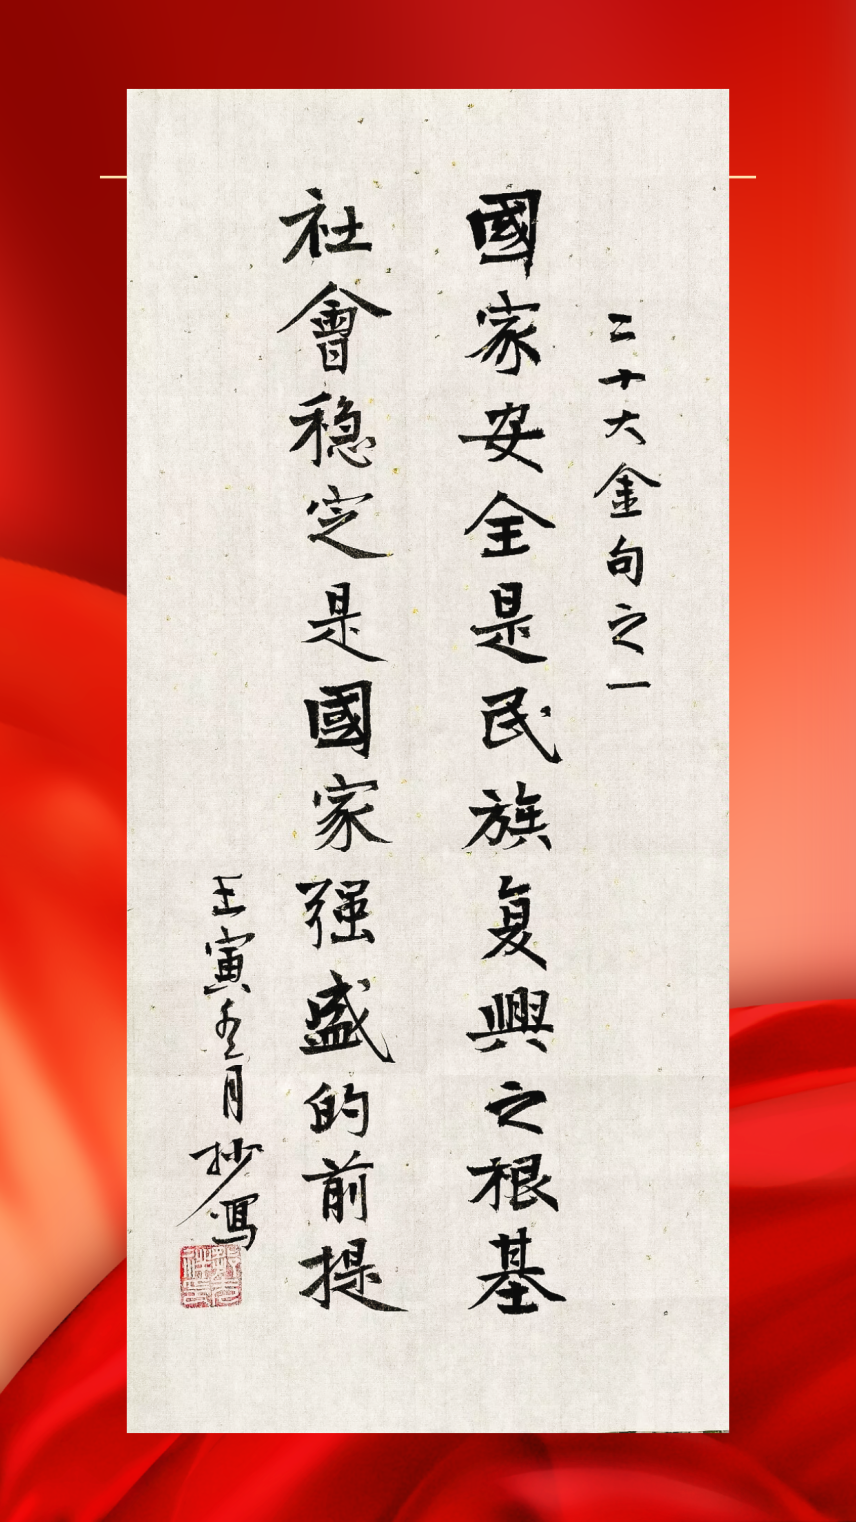 二十大金句之一
國家安全是民族复興之根基
社會稳定是國家强盛的前提
壬寅冬月抄寫